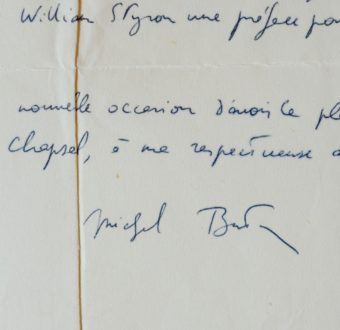 William Styron une préface pou
nouvelle occasion d'avoir le pl
Chapsal, à ma respectueuse a
Michel Butor